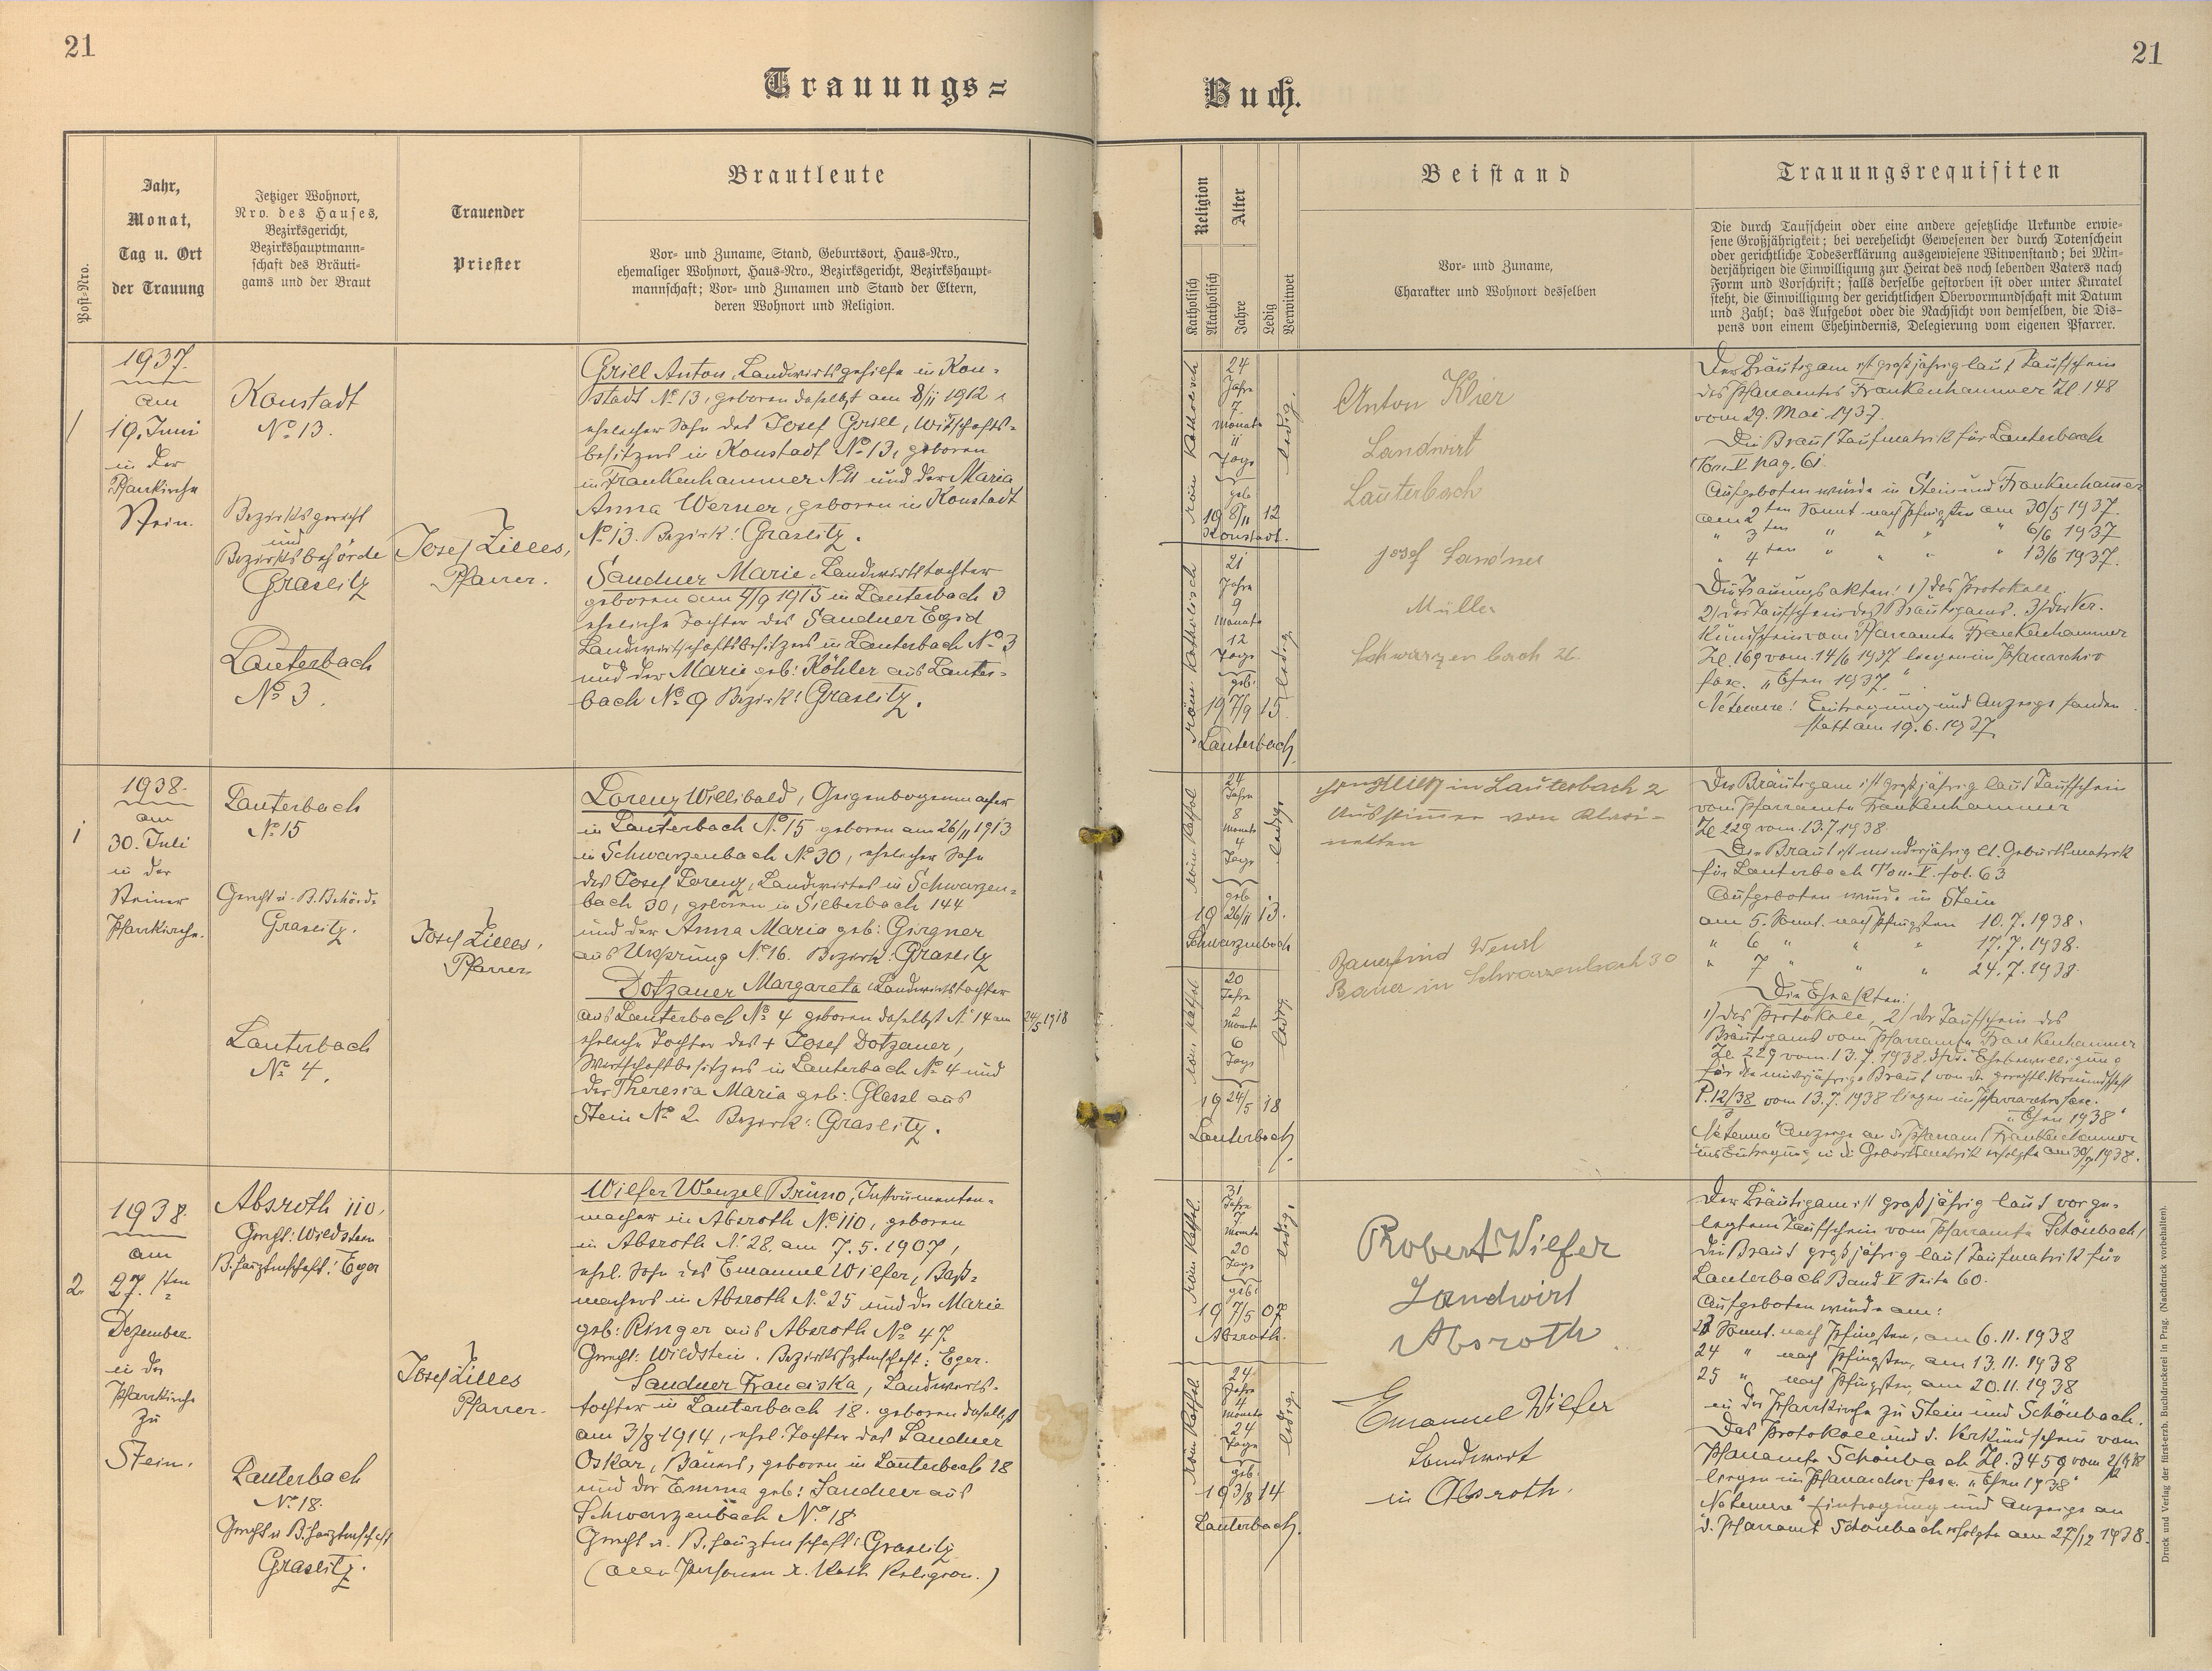 21
21
Trauungs=
Buch.
Post-Nro.
Jahr,
Monat,
Tag u. Ort
der Trauung
Jetziger Wohnort,
Nro. des Hauses,
Bezirksgericht,
Bezirkshauptmann-
schaft des Bräuti-
gams und der Braut
Trauender
Priester
Brautleute
Vor- und Zuname, Stand, Geburtsort, Haus-Nro.,
ehemaliger Wohnort, Haus-Nro., Bezirksgericht, Bezirkshaupt-
mannschaft; Vor- und Zunamen und Stand der Eltern,
deren Wohnort und Religion.
Religion
Katholisch
Akatholisch
Alter
Jahre
Ledig
Verwitwet
Beistand
Vor- und Zuname,
Charakter und Wohnort desselben
Trauungsrequisiten
Die durch Taufschein oder eine andere gesetzliche Urkunde erwie-
sene Großjährigkeit; bei verehelicht Gewesenen der durch Totenschein
oder gerichtliche Todeserklärung ausgewiesene Witwenstand; bei Min-
derjährigen die Einwilligung zur Heirat des noch lebenden Vaters nach
Form und Vorschrift; falls derselbe gestorben ist oder unter Kuratel
steht, die Einwilligung der gerichtlichen Obervormundschaft mit Datum
und Zahl; das Aufgebot oder die Nachsicht von demselben, die Dis-
pens von einem Ehehindernis, Delegierung vom eigenen Pfarrer.
1
1937.
am
19. Juni
in der
Pfarrkirche
Stein.
Konstadt
No 13.
Bezirksgericht
und
Bezirksbehörde
Graslitz
Lauterbach
No 3.
Josef Zilles,
Pfarrer.
Grill Anton, Landwirtsgehilfe in Kon=
stadt No 13, geboren daselbst am 8/11 1912
ehelicher Sohn des Josef Grill, Wirtschafts=
besitzers in Konstadt No 13, geboren
in Frankenhammer N 11 und der Maria
Anna Werner, geboren in Konstadt
No 13. Bezirk: Graslitz.
Sandner Marie, Landwirtstochter
geboren am 7/9 1915 in Lauterbach 3
eheliche Tochter des Sandner Egid
Landwirtschaftsbesitzers in Lauterbach No 3
und der Marie geb: Köhler aus Lauter=
bach No 9 Bezirk: Graslitz.
röm. katholisch
24
Jahre
7
Monate
11
Tage
geb
19 8/11 12
Konstadt.
ledig.
röm. katholisch
21
Jahre
9
Monate
12
Tage
geb.
19 7/9 15.
Lauterbach.
ledig
Anton Klier
Landwirt
Lauterbach
Josef Sandner
Müller
Schwarzenbach 26.
Der Bräutigam ist großjährig laut Taufschein
des Pfarramtes Frankenhammer Zl 148
vom 29. Mai 1937.
Die Braut Taufmatrik für Lauterbach
Tom. V pag. 61.
Aufgeboten wurde in Stein und Frankenhammer
am 2ten Sonnt. nach Pfingsten am 30/5 1937.
" 3ten " " " " 6/6 1937
" 4ten " " " " 13/6 1937.
Die Trauungsakten: 1) das Protokoll,
2) der Taufschein des Bräutigams. 3) der Ver-
kündschein vom Pfarramte Frankenhammer
Zl. 169 vom 14/6 1937 liegen im Pfarrarchiv
fasc. "Ehen 1937."
Netemere: Eintragung und Anzeige fanden
statt am 19.6.1937.
1
1938.
am
30. Juli
in der
Steiner
Pfarrkirche.
Lauterbach
No 15
Gericht u. B. Behörde
Graslitz.
Lauterbach
No 4.
Josef Zilles,
Pfarrer
Lorenz Willibald, Geigenbogenmacher
in Lauterbach No 15 geboren am 26/11 1913
in Schwarzenbach No 30, ehelicher Sohn
des Josef Lorenz, Landwirtes in Schwarzen=
bach 30, geboren in Silberbach 144
und der Anna Maria geb: Girgner
aus Ursprung No 16. Bezirk: Graslitz
Dotzauer Margareta Landwirtstochter
aus Lauterbach No 4 geboren daselbst N. 14 am 24/5 1918
eheliche Tochter des + Josef Dotzauer,
Wirtschaftsbesitzers in Lauterbach No 4 und
der Theresia Maria geb: Glassl aus
Stein No 2 Bezirk: Graslitz.
röm. kathol
24
Jahre
8
Monate
4
Tage
geb
19 26/11 13.
Schwarzenbach
ledig
röm. kathol
20
Jahre
2
Monate
6
Tage
19 24/5 18
Lauterbach.
ledig.
in Lauterbach 2
Bauerfeind Wenzl
Bauer in Schwarzenbach 30
Der Bräutigam ist großjährig laut Taufschein
vom Pfarramte Frankenhammer
Zl 229 vom 13.7.1938.
Die Braut ist minderjährig lt. Geburtsmatrik
für Lauterbach Tom. V. fol. 63
Aufgeboten wurde in Stein
am 5. Sonnt. nach Pfingsten 10.7.1938.
" 6 " " " 17.7.1938.
" 7 " " " 24.7.1938
Die Eheakten:
1) das Protokoll, 2) der Taufschein des
Bräutigams vom Pfarramte Frankenhammer
Zl. 229 vom 13.7.1938. 3) d. Ehebewilligung
für die minderjährige Braut von der gerichtl. Vormundschaft
P. 12/38 vom 13.7.1938 liegen im Pfarrarchiv fasc.
"Ehen 1938"
"Netemere" Anzeige an d. Pfarramt Frankenhammer
und Eintragung in die Geburtsmatrik erfolgte am 30/7 1938.
2.
1938.
am
27. ten
Dezember
in der
Pfarrkirche
zu
Stein.
Absroth 110,
Gericht: Wildstein
B. hauptmschaft: Eger
Lauterbach
No 18.
Gericht u B. hauptmschaft
Graslitz.
Josef Zilles
Pfarrer.
Wilfer Wenzel Bruno, Instrumenten=
macher in Absroth No 110, geboren
in Absroth N. 28. am 7.5.1907,
ehel. Sohn des Emanuel Wilfer, Baß=
machers in Absroth No 25 und der Marie
geb: Ringer aus Absroth No 47.
Gericht: Wildstein. Bezirkshptmschaft: Eger.
Sandner Franciska, Landwirts=
tochter in Lauterbach 18. geboren daselbst
am 3/8 1914, ehel. Tochter des Sandner
Oskar, Bauers, geboren in Lauterbach 18
und der Emma geb: Sandner aus
Schwarzenbach No 18
Gericht u. B. hauptmschaft: Graslitz
(alle Personen r. kath. Religion.)
röm. kathol.
31
Jahre
7
Monate
20
Tage
geb:
19 7/5 07
Absroth.
ledig.
röm. kathol.
24
Jahre
4
Monate
24
Tage
geb.
19 3/8 14
Lauterbach.
ledig.
Robert Wilfer
Landwirt
Absroth
Emanuel Wilfer
Landwirt
in Absroth.
Der Bräutigam ist großjährig laut vorge-
legtem Taufschein vom Pfarramte Schönbach,
die Braut großjährig laut Taufmatrik für
Lauterbach Band V Seite 60.
Aufgeboten wurde am:
23 Sonnt. nach Pfingsten, am 6.11.1938
24 " nach Pfingsten, am 13.11.1938
25 " nach Pfingsten, am 20.11.1938
in der Pfarrkirche zu Stein und Schönbach.
Das Protokoll und d. Verkündschein vom
Pfarramte Schönbach Zl. 3459 vom
liegen im Pfarrarchiv fasc. "Ehen 1938"
"Netemere" Eintragung und Anzeige an
d. Pfarramt Schönbach erfolgte am 27/12 1938.
Druck und Verlag der fürst-erzb. Buchdruckerei in Prag. (Nachdruck vorbehalten).